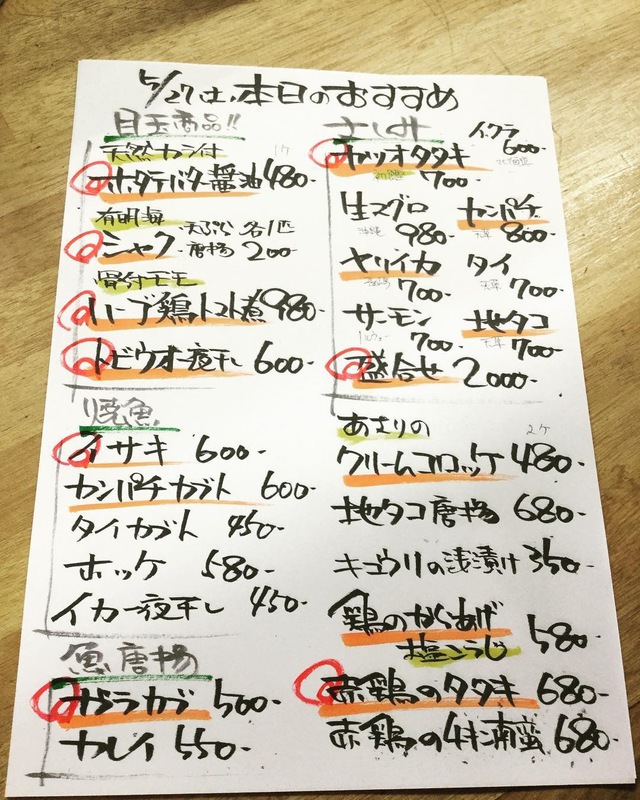 5/27(土)本日のおすすめ
目玉商品!!
天然カラ付 1ケ
ホタテバター醤油 480-
有明海
シャク 天ぷら 唐揚 各1匹 200-
骨付モモ
ハーブ鶏トマト煮 980-
トビウオ一夜干し 600-
焼魚
イサキ 600-
カンパチカブト 600-
タイカブト 450-
ホッケ 580-
イカ一夜干し 450-
魚唐揚
ガラカブ 500-
カレイ 550-
さしみ
イクラ 600- 北海道
カツオタタキ 700-
生マグロ 980-
カンパチ 天草 800-
ヤリイカ 700-
タイ 天草 700-
サーモン ノルウェー 700-
地タコ 天草 700-
盛合せ 2000-
あさりの 2ケ
クリームコロッケ 480-
地タコ唐揚 680-
キュウリの浅漬け 350-
鶏のからあげ
塩こうじ 580-
赤鶏のタタキ 680-
赤鶏のチキン南蛮 680-